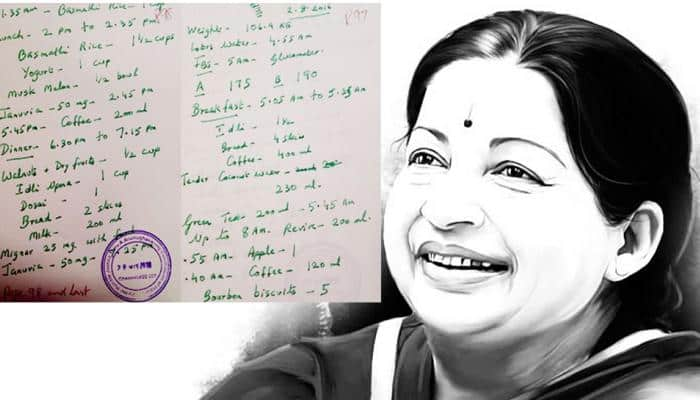 .35 AM - Basmathi Rice - 1 cup
P98
Lunch - 2 pm to 2.35 pm.
Basmathi Rice - 1½ cups
Yogurt - 1 cup
Musk Melon - ½ bowl
Januvia - 50 mg - 2.45 pm
5.45 pm - Coffee - 200 ml
Dinner - 6.30 pm to 7.15 pm
Walnuts + Dry fruits - ½ cup
Idli Upma - 1 cup
Dosai - 1
Bread - 2 slices
Milk - 200 ml
Mignar 25 mg with food
Januvia - 50 mg - 7.25 pm
Page 98 and last
P97
2.8.2016
Weight - 106.9 KG
Water - 4.55 AM
FBS - 5 AM - Glucometer
A 175 B 190
Breakfast - 5.05 AM to 5.35 AM
Idli - 1½
Bread - 4 slices
Coffee - 400 ml
Tender Coconut Water -
230 ml.
Green Tea - 200 ml - 5.45 AM
Up to 8 AM. Revive - 200 ml.
.55 AM - Apple - 1
.40 AM - Coffee - 120 ml
Bourbon biscuits - 5